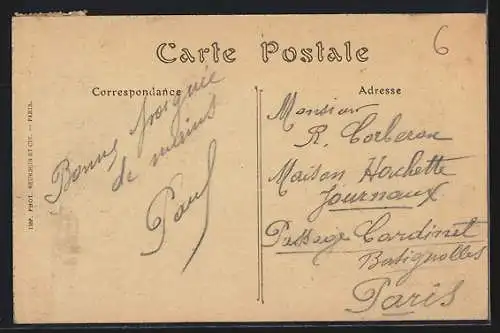 Carte Postale
6
Correspondance
Adresse
Bonne poignée
de mains
Paul
Monsieur
R. Corberon
Maison Hachette
Journaux
Passage Cardinet
Batignolles
Paris
IMP. PHOT. NEURDEIN ET CIE. — PARIS.